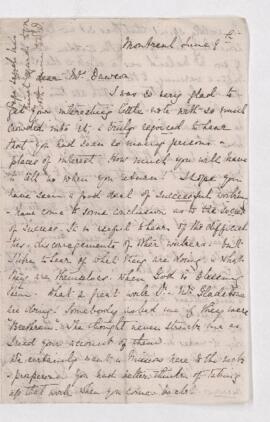 Montreal June 9th
My dear Mr Dawson
I was so very glad to
get your interesting little note with so much
crowded into it, & truly rejoiced to hear
that you had seen so many persons &
places of interest. How much you will have
to tell us when you return! I hope you
have seen a good deal of successful workers
& have come to some conclusion as to the secret
of success. It is helpful to hear of the difficul
ties & discouragements of other workers &
to hear of what they are doing & what
they are themselves. When God is blessing
them. What a great work Dr & Mrs Gladstone
are doing. Somebody asked me if they were
"Brethren". The thought never struck me as
I read your account of them.
We certainly want a Mission here to the rich
& prosperous you had better think of taking
up that work when you come back.